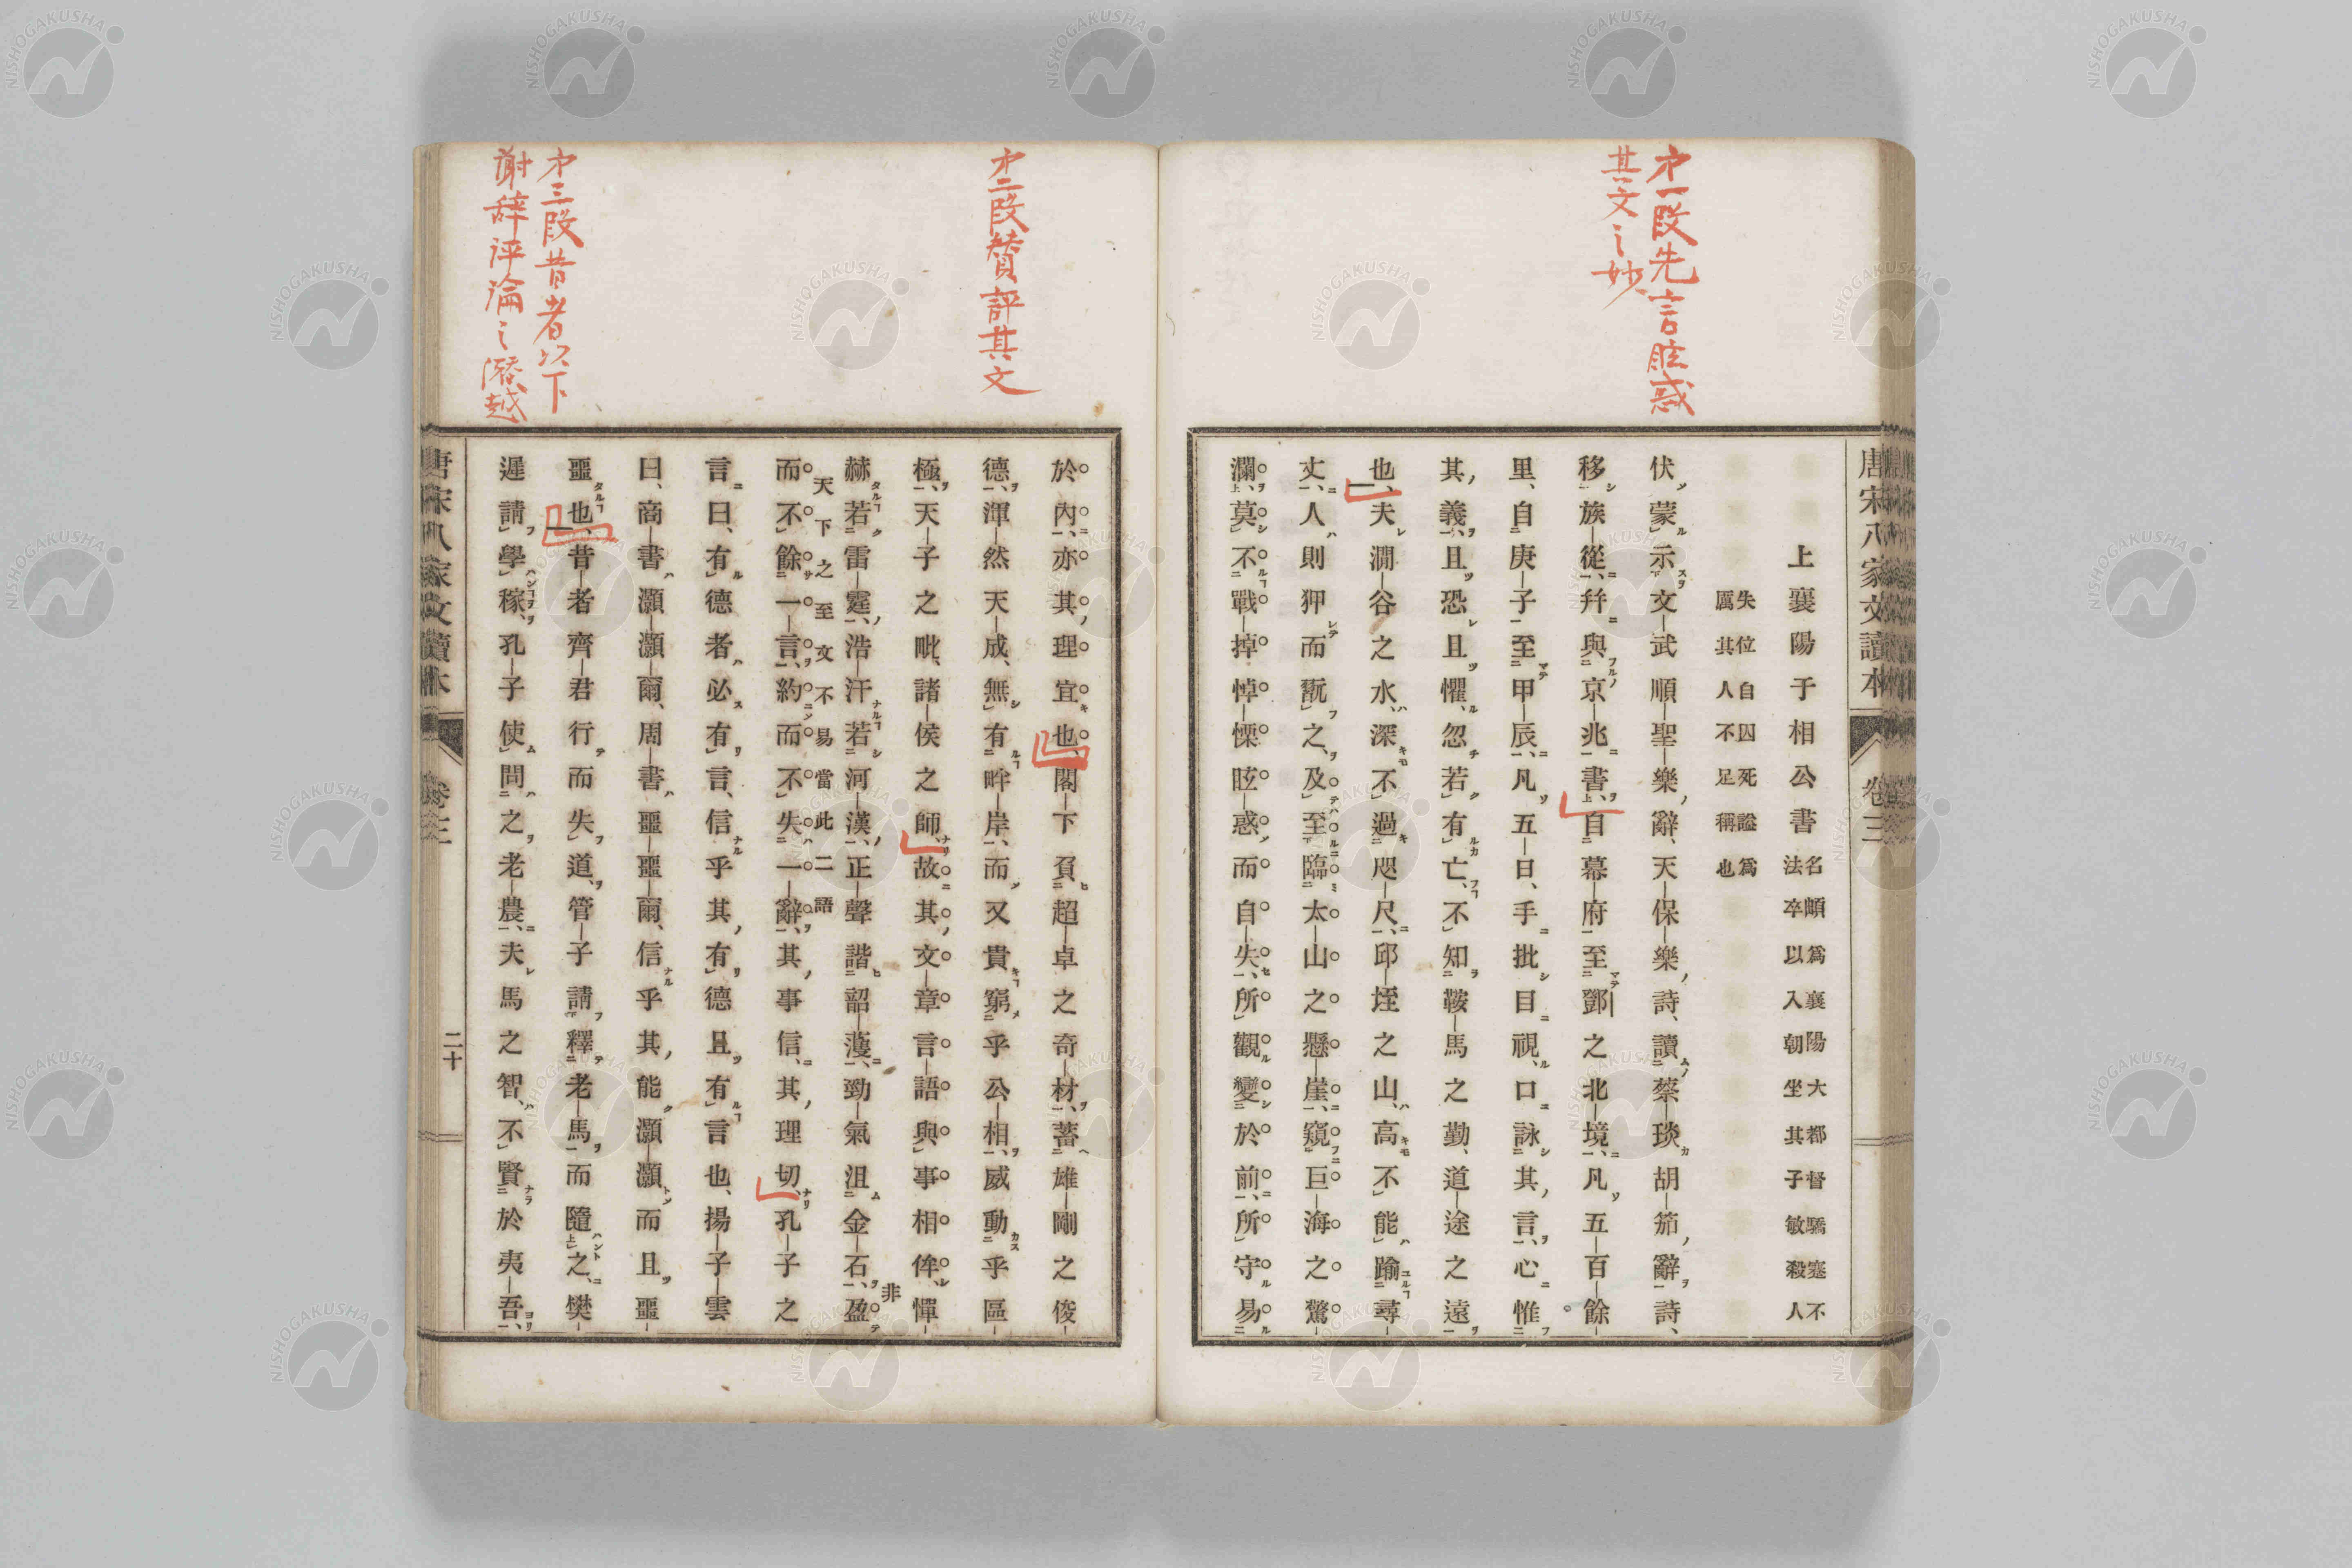 唐宋八家文讀本
卷三
上襄陽于相公書
名頔爲襄陽大都督驕蹇不
法卒以入朝坐其子敏殺人
失位自囚死謚爲
厲其人不足稱也
伏蒙示文武順聖樂辭天保樂詩、讀蔡琰胡笳辭詩、
移族從、幷與京兆書、自幕府至鄧之北境、凡五百餘
里、自庚子至甲辰、凡五日、手批目視、口詠其言、心惟
其義、且恐且懼、忽若有亡、不知鞍馬之勤、道途之遠
也、夫澗谷之水、深不過咫尺、邱垤之山、高不能踰尋
丈、人則狎而翫之、及至臨太山之懸崖、窺巨海之驚
瀾、莫不戰掉悼慄眩惑而自失、所觀變於前、所守易
第一段先言眩惑
其文之妙
於內、亦其理宜也、閣下負超卓之奇材、蓄雄剛之俊
德、渾然天成、無有畔岸、而又貴窮乎公相、威動乎區
極、天子之毗、諸侯之師、故其文章言語與事相侔、憚
赫若雷霆、浩汗若河漢、正聲諧韶濩、勁氣沮金石、盈
非
天下之至文不易當此二語
而不餘一言、約而不失一辭、其事信、其理切、孔子之
言曰、有德者必有言、信乎其有德且有言也、揚子雲
曰、商書灝灝爾、周書噩噩爾、信乎其能灝灝而且噩
噩也、昔者齊君行而失道、管子請釋老馬而隨之、樊
遲請學稼、孔子使問之老農、夫馬之智、不賢於夷吾、
第二段賛評其文
第三段昔者以下
謝辞評論之潛越
唐宋八家文讀本
卷三
二十